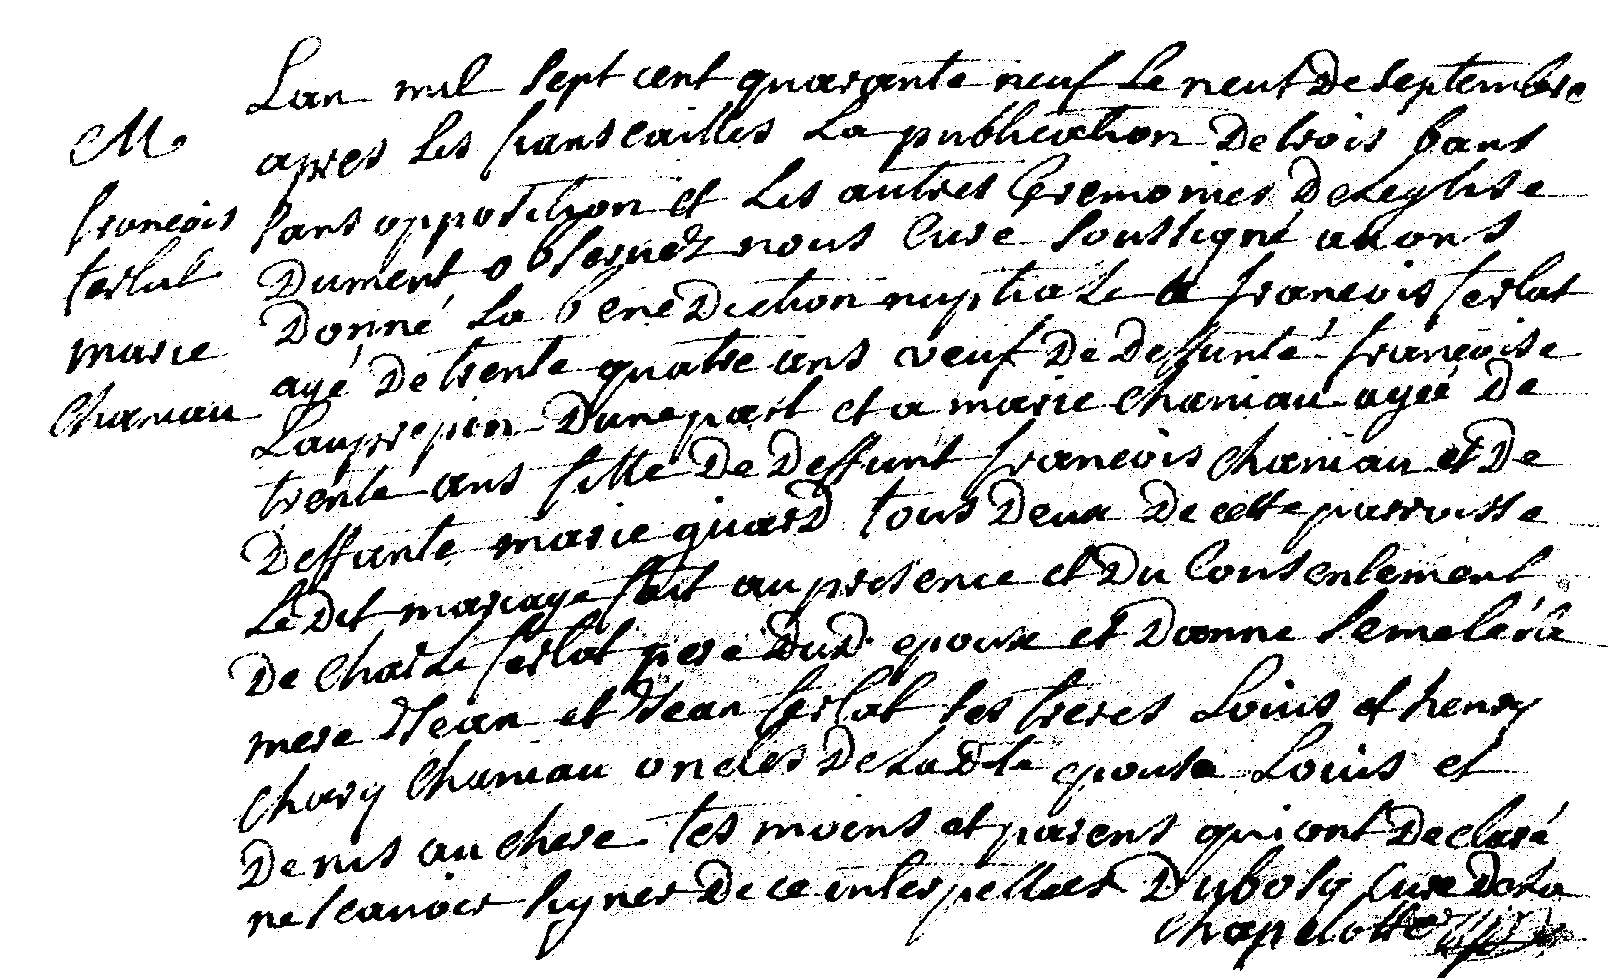 M
françois
ferlat
marie
Chaniau
Lan mil sept cent quarante neuf le neuf De septembre
apres les fianscailles La publication De trois bans
sans opposition et Les autres Ceremonies De Leglise
Dument observez nous Curé soussigné avons
Donné La beneDiction nuptiale a françois ferlat
agé De trente quatre ans veuf De Deffunté françoise
Lauprepin Dune part et a marie Chaniau ageé De
trente ans fille De Deffunt françois Chaniau et De
Deffunte marie giard tous Deux De cette parroisse
Le Dit mariage fait au presence et Du Consentement
De Charle ferlat pere DuD epoux et Danne
mere Jean et Jean ferlat ses freres Louis et henry
Chaniau oncles De LaDte epouse Louis et
Denis auchere tesmoins et parens qui ont Declaré
ne scavoir signer De ce interpellees Dubosq Curé De La
Chapelotte